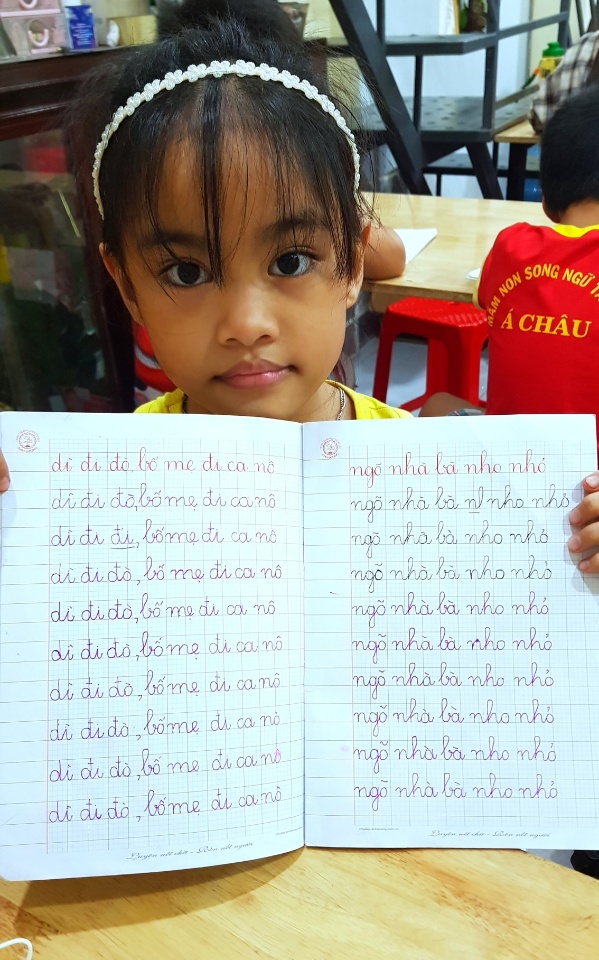 MẦM NON SONG NGỮ
Á CHÂU
dì đi đò, bố mẹ đi ca nô
dì đi đò, bố mẹ đi ca nô
dì đi đi, bố mẹ đi ca nô
dì đi đò, bố mẹ đi ca nô
dì đi đò, bố mẹ đi ca nô
dì đi đò, bố mẹ đi ca nô
dì đi đò, bố mẹ đi ca nô
dì đi đò, bố mẹ đi ca nô
dì đi đò, bố mẹ đi ca nô
dì đi đò, bố mẹ đi ca nô
Luyện nét chữ - Rèn nết người
ngõ nhà bà nho nhỏ
ngõ nhà bà nh nho nhỏ
ngõ nhà bà nho nhỏ
ngõ nhà bà nho nhỏ
ngõ nhà bà nho nhỏ
ngõ nhà bà nho nhỏ
ngõ nhà bà nho nhỏ
ngõ nhà bà nho nhỏ
ngõ nhà bà nho nhỏ
ngõ nhà bà nho nhỏ
Luyện nét chữ - Rèn nết người